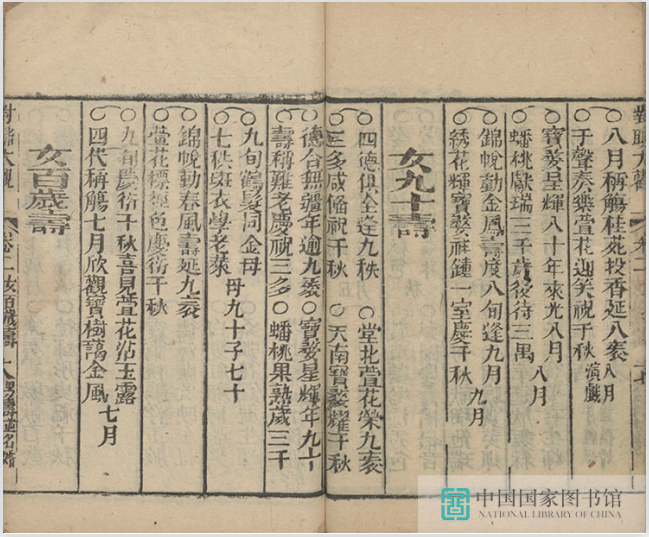 八月稱觴桂花投香延八袠 八月
千聲奏樂萱花迎笑祝千秋 演戲
寶婺星輝八十年來光八月
蟠桃獻瑞三千歲後待三萬 八月
錦帨勤金風壽度八旬逢九月
綉花輝寶婺祥鍾一室慶千秋 九月
女九十壽
四德俱全逢九秩 堂北萱花榮九袠
三多咸備祝千秋 天南寶婺耀千秋
德合無疆年逾九袠 寶婺星輝年九十
壽稱難老慶祝三多 蟠桃果熟歲三千
九旬鶴髮同金母
七秩斑衣學老萊 母九十子七十
錦帨勤春風壽延九袠
萱花標經色慶衍千秋
九旬慶衍千秋喜見萱花沾玉露
四代稱觴七月欣觀寶樹藹金風 七月
女百歲壽
對聯大觀 卷二 女百歲壽 十八
中国国家图书馆
NATIONAL LIBRARY OF CHINA